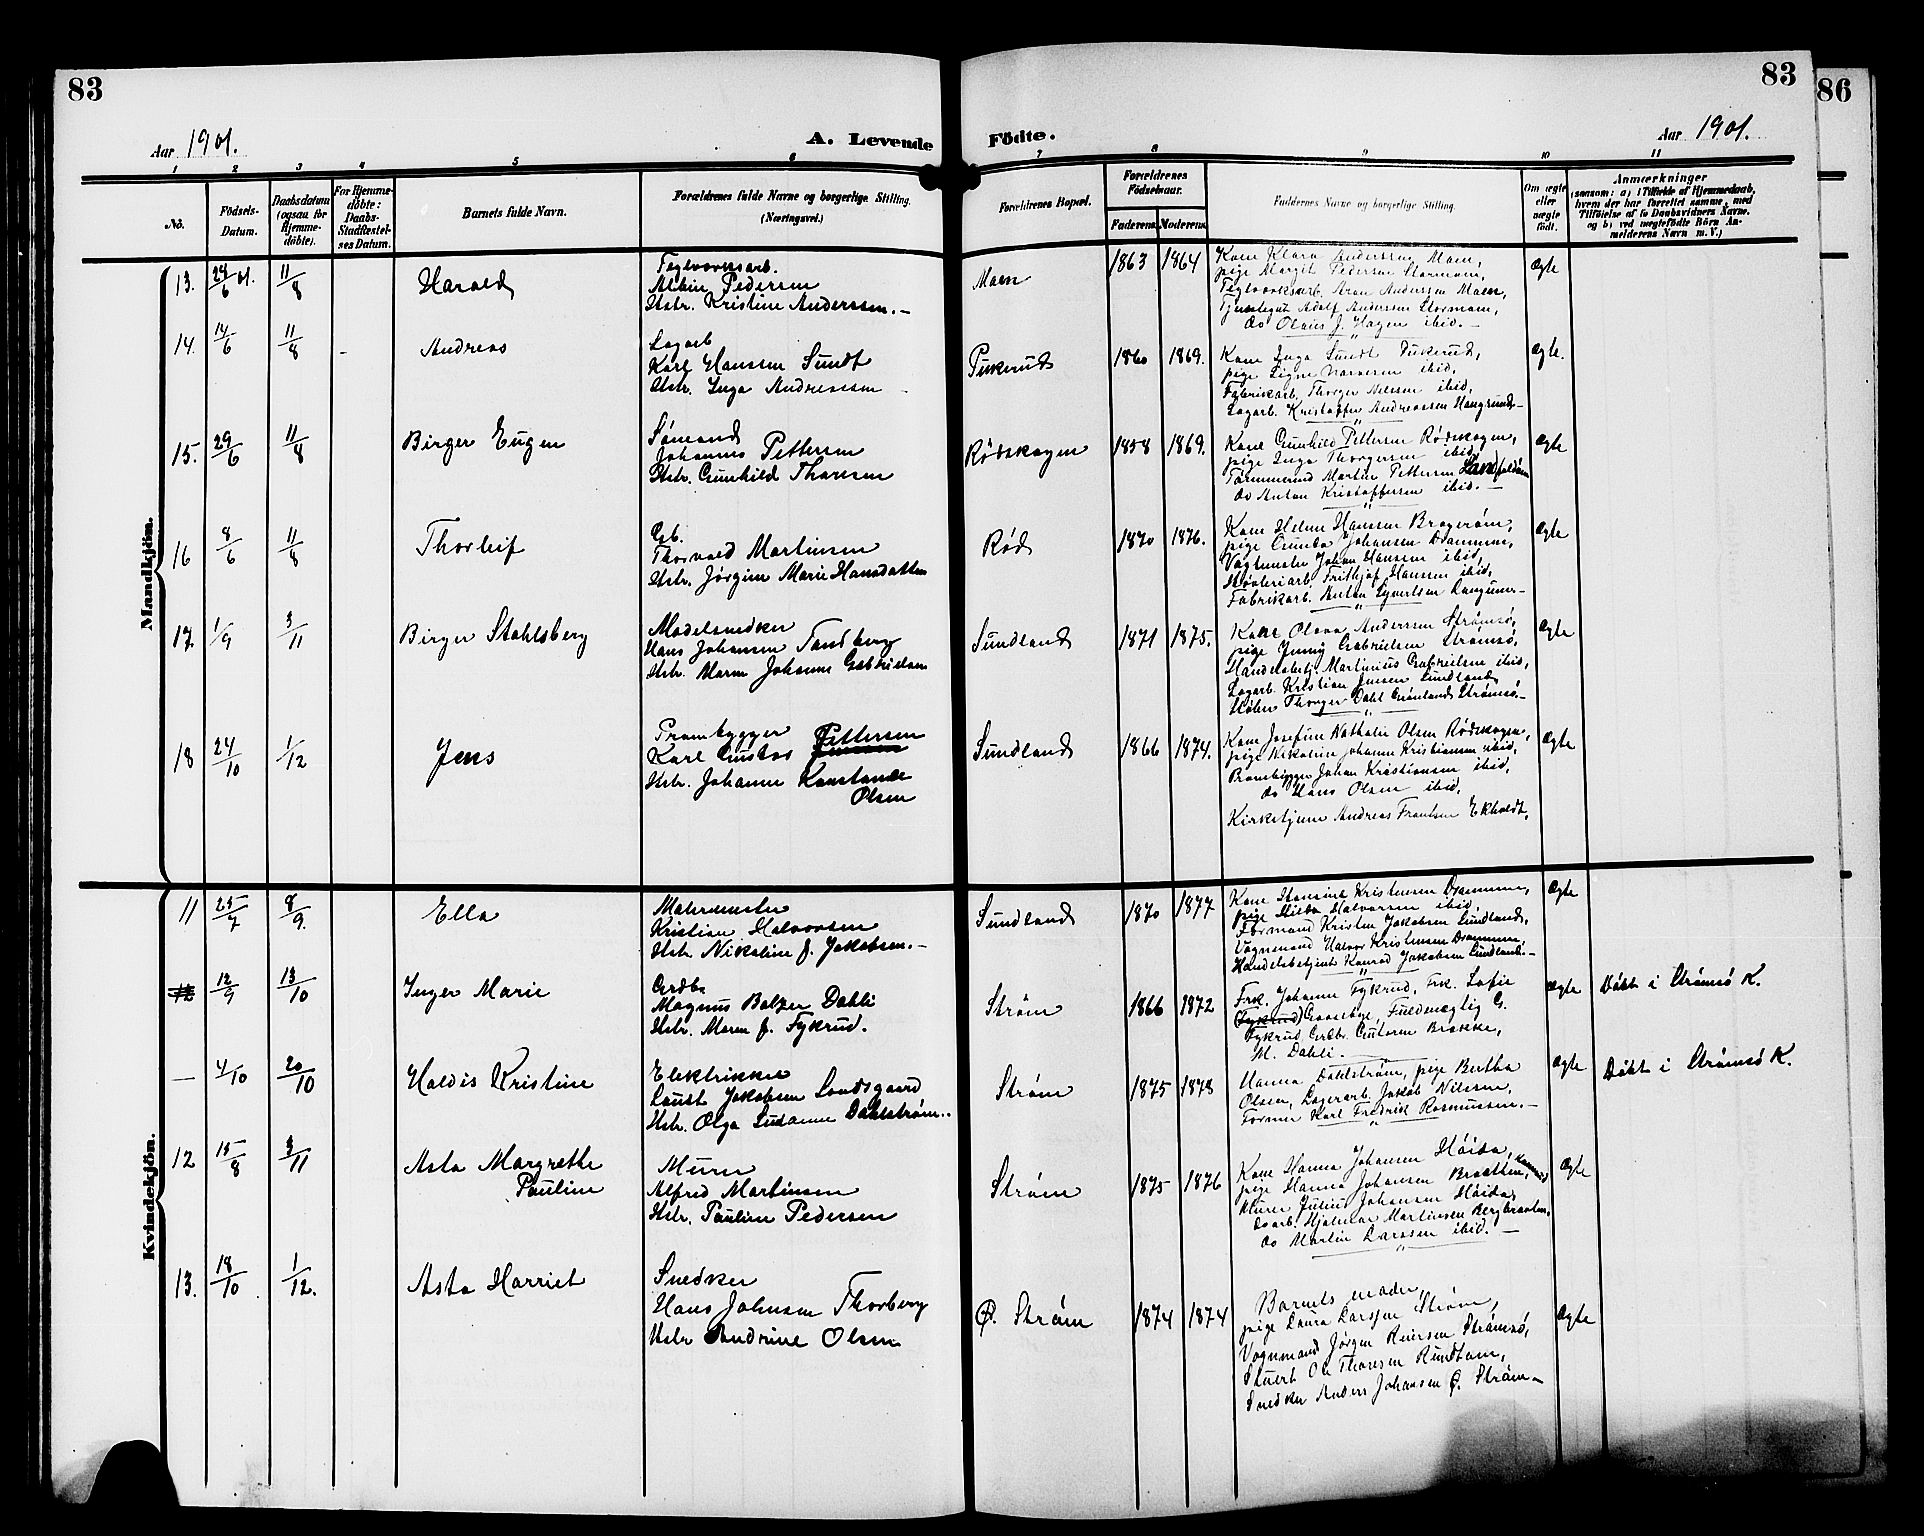 83
83
86
Aar 1901.
A. Levende Födte.
Aar 1901.
1 2 3 4 5 6 7 8 9 10 11
No.
Födsels-Datum.
Daabsdatum (ogsaa for Hjemme-döbte).
For Hjemme-döbte: Daabs-Stadfæstel-ses Datum.
Barnets fulde Navn.
Forældrenes fulde Navne og borgerlige Stilling. (Næringsvei.)
Forældrenes Bopæl.
Forældrenes Födselsaar.
Faderens. Moderens.
Faddernes Navne og borgerlige Stilling.
Om ægte eller uægte født.
Anmærkninger
(saasom: a) i Tilfælde af Hjemmedaab, hvem der har forrettet samme, med Tilföielse af to Daabsvidners Navne, og b) ved uægtefödte Börn An-melderens Navn m. V.)
Mandkjön.
13. 24/6 01. 11/8 Harald
Teglværksarb.
Albin Pedersen
Hstr. Kristine Anderssen.-
Maen 1863 1864
Kone Klara Anderssen Maen,
pige Margit Pedersen Stormoen,
Teglværksarb. Aron Anderssen Maen,
Tjenestegut Adolf Anderssen Stormoen,
do Olaus J. Hagen ibid.-
Ægte
14. 14/6 11/8 - Andreas
Sagarb
Karl Hanssen Sundt
Hstr. Inga Andreassen
Pukerud 1860 1869.
Kone Inga Sundt Pukerud,
pige Signe ibid,
Fabrikarb. Thorger Nilssen ibid,
Sagarb. Kristoffer Andreassen Haugsund-
Ægte.
15. 29/6 11/8 Birger Eugen
Sømand
Johannes Pettersen
Hstr. Gunhild Thoresen
Rødskogen 1858 1869.
Kone Gunhild Pettersen Rødskogen,
pige Inga Thorgersen ibid,
Tømmermd Martin Pettersen
do Anton Kristoffersen ibid.-
Ægte
16 8/6 11/8 Thorleif
Gb.
Thorvald Martinsen
Hstr. Jørgine Marie Hansdatter
Rød 1870 1876.
Kone Helene Hanssen Bragerøen,
pige Gunda Johansen Drammen,
Vagtmester Johan Hanssen ibid,
Høvleriarb. Frithjof Hanssen ibid,
Fabrikarb. Anton Syvertsen
Ægte
17. 1/9 3/11 Birger Stahlsberg
Modelsnedker
Hans Johansen Tandberg
Hstr. Maren Johanne Gabrielsen
Sundland 1871 1875.
Kone Olava Anderssen Strømsø,
pige Jenny Gabrielsen Strømsø,
Handelsbetj. Martinius Gabrielsen ibid,
Sagarb. Kristian Jensen Sundland,
Thorger Dahl Grønland Strømsø.-
Ægte
18 24/10 1/12 Jens
Prambygger
Karl Gustav Pettersen
Hstr. Johanne Konstanse
Olsen
Sundland 1866 1874.
Kone Josefine Nathalie Olsen Rødskogen,
pige Nikoline Johanne Kristiansen ibid,
Prambygger Johan Kristiansen ibid,
do Hans Olsen ibid,
Kirketjener Andreas Frantsen Ekholdt,
Ægte
Kvindekjön.
11 25/7 8/9. Ella
Malermester
Kristian Halvorsen
Hstr Nikoline J. Jakobsen.-
Sundland 1870 1877
Kone Hansine Kristensen Drammen,
pige Hilda Halvorsen ibid,
Formand Kristen Jakobsen Sundland,
Vognmand Halvor Kristensen Drammen,
Handelsbetjent Konrad Jakobsen Sundland.-
Ægte
12/9 13/10 Inger Marie
Grdbr
Magnus Balzer Dahli
Hstr. Maren J. Fykrud.
Strøm 1866 1872
Frk. Johanne Fykrud, Frk. Sofie
(Fykrud) Gaasebye, Fuldmægtig G.
Fykrud, Grdbr. Guttorm Brække,
M. Dahli.-
Ægte Døbt i Strømsø K.
- 4/10 20/10 Haldis Kristine
Elektriker
Laust Jakobsen Sondsgaard
Hstr. Olga Susanne Dahlstrøm..
Strøm 1875 1878
Hanna Dahlstrøm, pige Bertha
Olsen, Lagerarb. Jakob Nilssen,
Former Karl Fredrik Rasmussen.-
Ægte Døbt i Strømsø K.
12 15/8 3/11 Asta Margrethe
Pauline
Murer
Alfred Martinsen
Hstr. Pauline Pedersen
Strøm 1875 1876
Kone Hanna Johansen Høida,
pige Hanna Johansen Braatten,
Murer Julius Johansen Høida,
do arb. Hjalmar Martinsen Bergbraaten,
do Martin Larssen ibid.-
Ægte
13. 18/10 1/12. Asta Harriet
Snedker
Hans Johnsen Thorberg
Hstr Andrine Olsen
Ø. Strøm 1874 1874
Barnets moder,
pige Laura Larssen Strøm,
Vognmand Jørgen Reiersen Strømsø,
Stuert Ole Thoresen Rundtom,
Snedker Anders Johansen Ø. Strøm-
Ægte